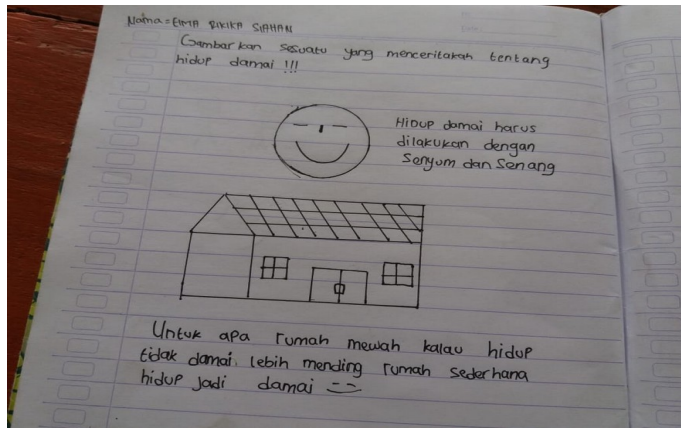 Nama = ELMA RIKIKA SIAHAN
Gambar kan sesuatu yang menceritakah tentang
hidup damai !!!
Hidup damai harus
dilakukan dengan
Senyum dan Senang
Untuk apa rumah mewah kalau hidup
tidak damai, lebih mending rumah sederhana
hidup jadi damai